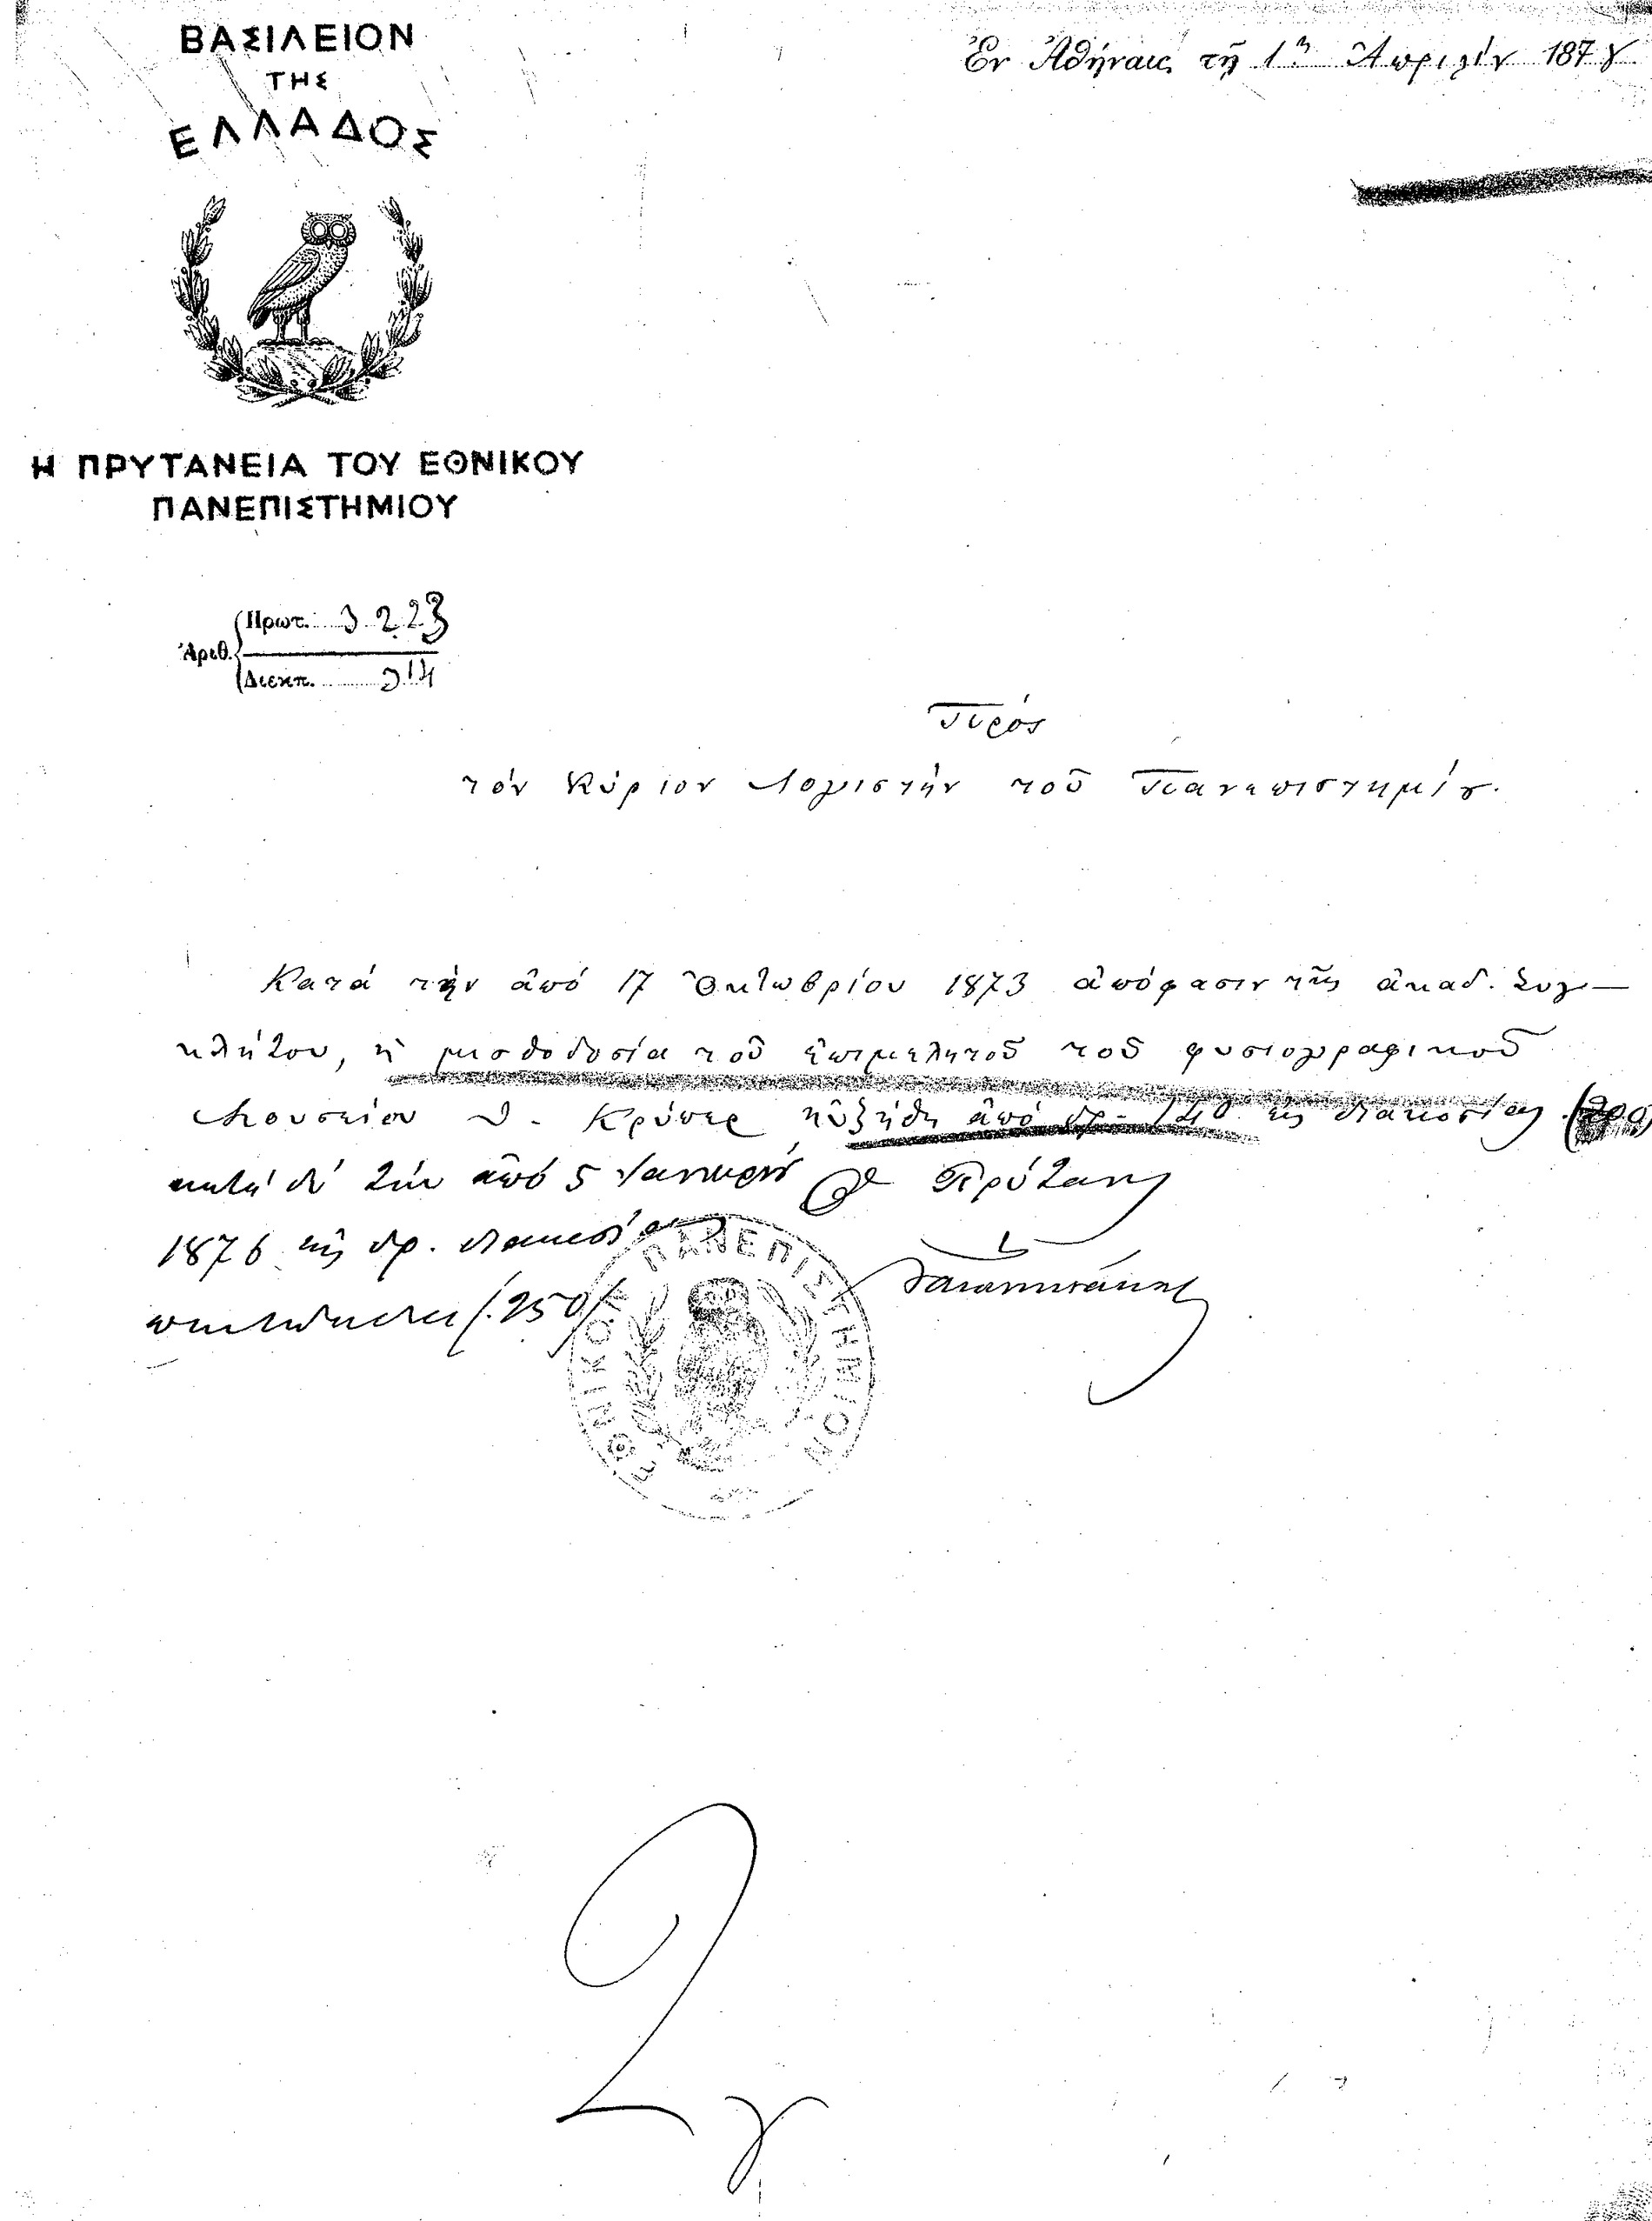 ΒΑΣΙΛΕΙΟΝ
ΤΗΣ
ΕΛΛΑΔΟΣ
Ἐν Ἀθήναις τῇ 1ῃ Ἀπριλίου 187
Η ΠΡΥΤΑΝΕΙΑ ΤΟΥ ΕΘΝΙΚΟΥ
ΠΑΝΕΠΙΣΤΗΜΙΟΥ
Ἀριθ.
Πρωτ. 3223
Διεκπ.
Πρός
τόν Κύριον Λογιστήν τοῦ Πανεπιστημίου.
Κατά τήν ἀπό 17 Ὀκτωβρίου 1873 ἀπόφασιν τῆς ἀκαδ. Συγ-
κλήτου, ἡ μισθοδοσία τοῦ ἐπιμελητοῦ τοῦ φυσιογραφικοῦ
Μουσείου Θ. Κρύπερ ηὐξήθη ἀπό δρ. 140 εἰς διακοσίας (200)
κατά δέ τήν ἀπό 5 Ἰανουαρίου
1876 εἰς δρ. διακοσίας
πεντήκοντα (250)
Ὁ Πρύτανις
ΕΘΝΙΚΟΝ ΠΑΝΕΠΙΣΤΗΜΙΟΝ
2
γ